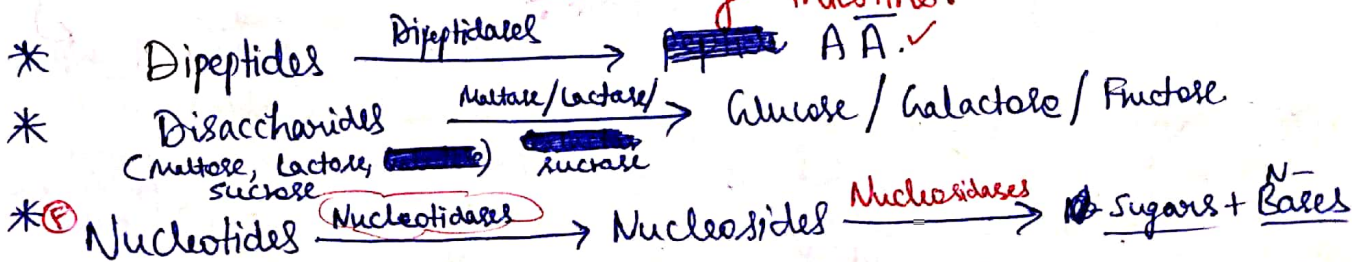 Intestine.
* Dipeptides Dipeptidases → A A. ✓
* Disaccharides Maltase/Lactase/ sucrase → Glucose / Galactose / Fructose
(Maltose, Lactose, sucrose)
* F Nucleotides Nucleotidases → Nucleosides Nucleosidases → Sugars + N- Bases